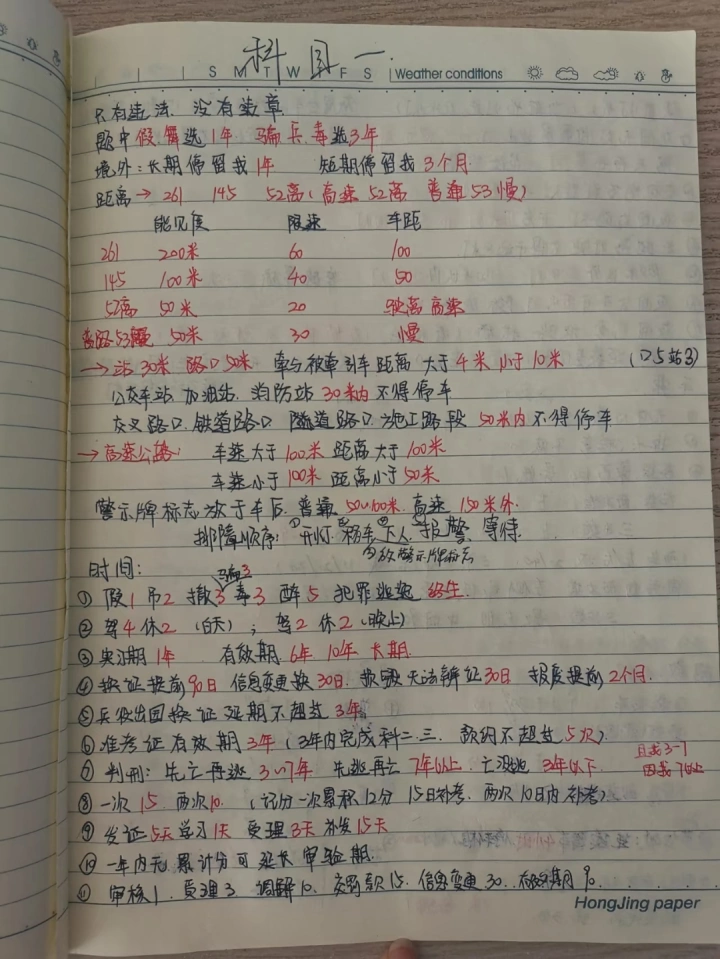 科目一
S M T W T F S Weather conditions
只有违法 没有违章
题中假.舞选1年 骗.兵.毒选3年
境外:长期停留我1年 短期停留我3个月
距离→ 261 145 52离(高速52离 普通53慢)
能见度 限速 车距
261 200米 60 100
145 100米 40 50
52离 50米 20 驶离高速
普路53慢 50米 30 慢
→站30米 路口50米 牵与被牵引车距离 大于4米 小于10米 (口5站3)
公交车站.加油站.消防站 30米内不得停车
交叉路口.铁道路口 隧道路口.施工路段 50米内不得停车
→高速公路: 车速大于100米 距离大于100米
车速小于100米 距离小于50米
警示牌标志放于车后.普通50~100米.高速 150米外.
排障顺序: ①开灯 ②移车 ③下人 报警、等待
④放警示牌标志
时间: 骗3
① 假1 吊2 撤3 毒3 醉5 犯罪逃逸 终生.
② 驾4休2 (白天) ; 驾2 休2 (晚上)
③ 实习期 1年 有效期 6年 10年 长期
④ 换证提前90日 信息变更换30日. 无法辨证30日 提前2个月.
⑤ 兵役出国换证延期不超过3年
⑥ 准考证有效期3年(3年内完成科二.三. 预约不超过5次)
⑦ 判刑: 先亡再逃 3~7年 先逃再亡 7年以上. 亡没逃 3年以下 且我3-7
因我7以上
⑧ 一次15. 两次10. (记分一次累积12分 15日补考. 两次10日内补考)
⑨ 发证5天学习1天 受理3天补发15天
⑩ 一年内无累计分可延长审验期.
⑪ 审核1. 受理3 调解10. 交罚款15. 信息变更30. 有效期90.
HongJing paper